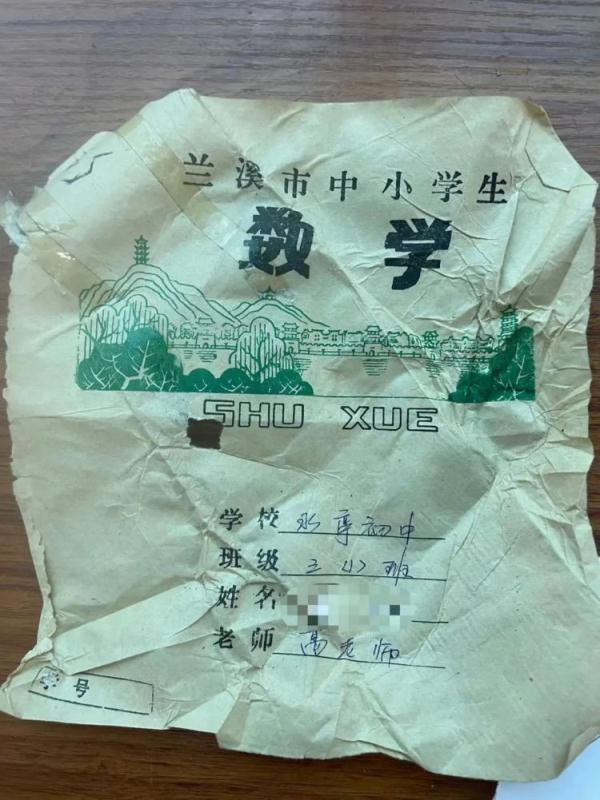 兰溪市中小学生
数学
SHU XUE
学校 水亭初中
班级 三(1)班
姓名
老师 汤老师
学号